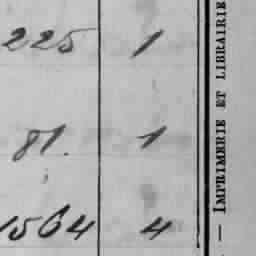 225 1
81. 1
1564 4
— IMPRIMERIE ET LIBRAIRIE